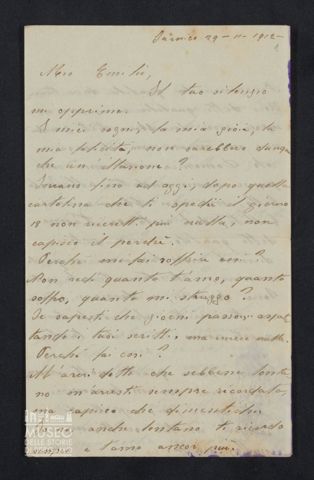 29-11-1912-
Mio Emilio,
Il tuo silenzio
mi opprime.
I miei sogni, la mia gioia, la
mia felicità, non sarebbero dunque
che un'illusione?
Invano fino ad oggi, dopo quella
cartolina che ti spedii il giorno
18 non ricevetti più nulla, non
capisco il perché.
Perché mi fai soffrire così?
Non vedi quanto t'amo, quanto
soffro, quanto mi struggo?
Se sapessi che giorni passo aspet
tando i tuoi scritti, ma invece nulla.
Perché fai così?
M'avevi detto che sebbene lonta
no m'avresti sempre ricordata,
ma capisco che
anche lontano ti ricordo
e t'amo ancor più.
MUSEO
DELLE STORIE